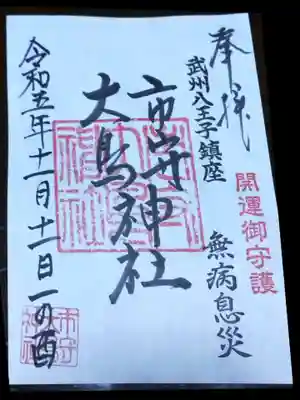 奉拝
武州八王子鎮座
開運御守護
無病息災
市守神社
大鳥神社
令和五年十一月十一日一の酉
市守
神社